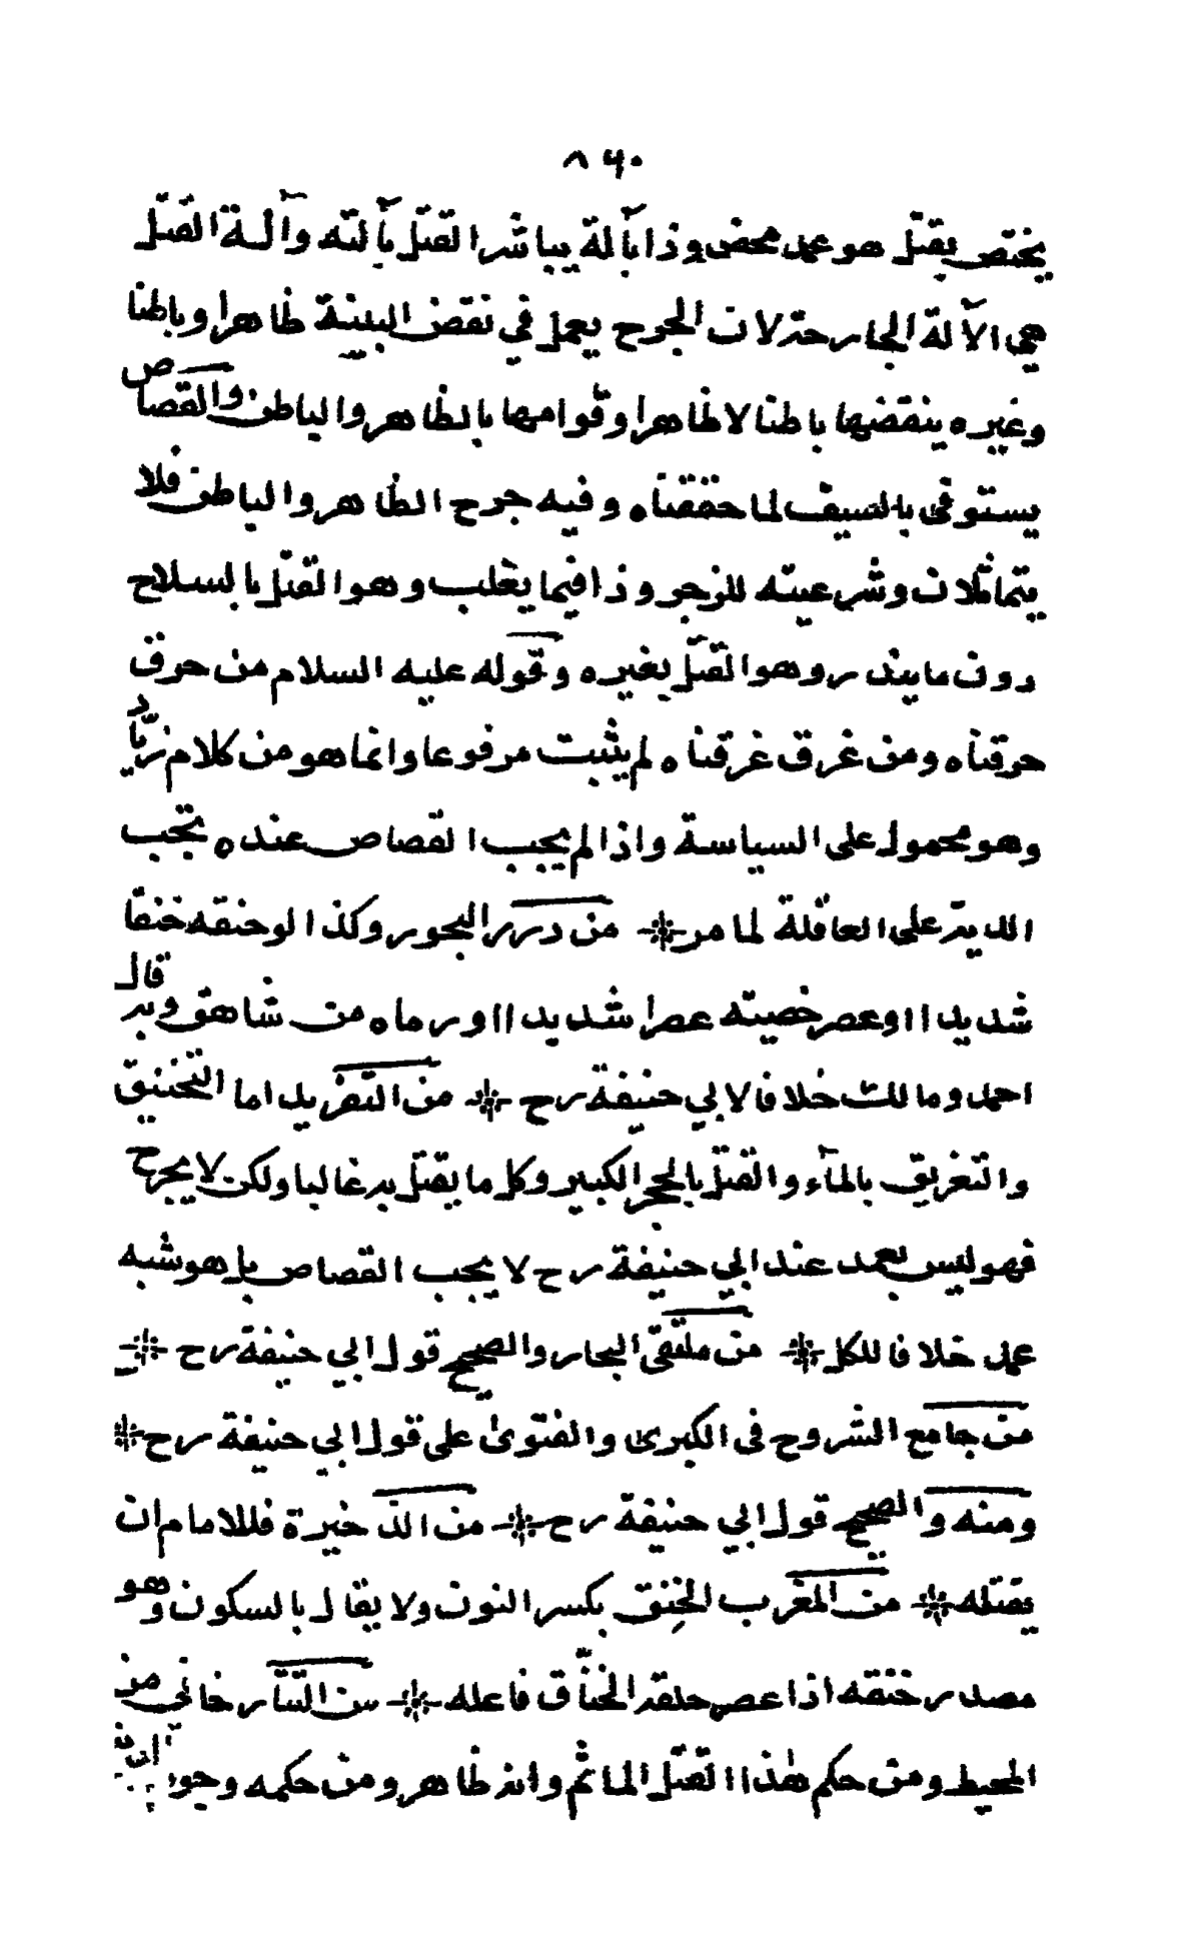 ٨٦٠
يختص بقتل هو عمد محض وذا بآلة يباشر القتل بآلته وآلة القتل
هي الآلة الجارحة لان الجرح يعمل في نقض البينية ظاهرا وباطنا
وغيره ينقضها باطنا لا ظاهرا وقوامها بالظاهر والباطن والقصاص
يستوفى بالسيف لما حققناه وفيه جرح الظاهر والباطن فلا
يتماثلان وشرعيته للزجر وذا فيما يغلب وهو القتل بالسلاح
دون ما يندر وهو القتل بغيره وقوله عليه السلام من حرق
حرقناه ومن غرق غرقناه لم يثبت مرفوعا وانما هو من كلام زياد
وهو محمول على السياسة واذا لم يجب القصاص عنده تجب
الدية على العاقلة لما مر من درر البحور وكذا لو خنقه خنقا
شديدا او عصر خصيته عصرا شديدا او رماه من شاهق وبه قال
احمد ومالك خلافا لابي حنيفة رح من التفريد اما التخنيق
والتغريق بالمآء والقتل بالحجر الكبير وكل ما يقتل به غالبا ولكن لا يجرح
فهو ليس بعمد عند ابي حنيفة رح لا يجب القصاص بل هو شبه
عمد خلافا للكل من ملتقى البحار والصحيح قول ابي حنيفة رح
من جامع الشروح في الكبرى والفتوى على قول ابي حنيفة رح
ومنه والصحيح قول ابي حنيفة رح من الذخيرة فللامام ان
يقتله من المغرب الخنق بكسر النون ولا يقال بالسكون وهو
مصدر خنقه اذا عصر حلقه الخناق فاعله من التتارخاني من
المحيط ومن حكم هذا القتل الماثم وانه ظاهر ومن حكمه وجوب